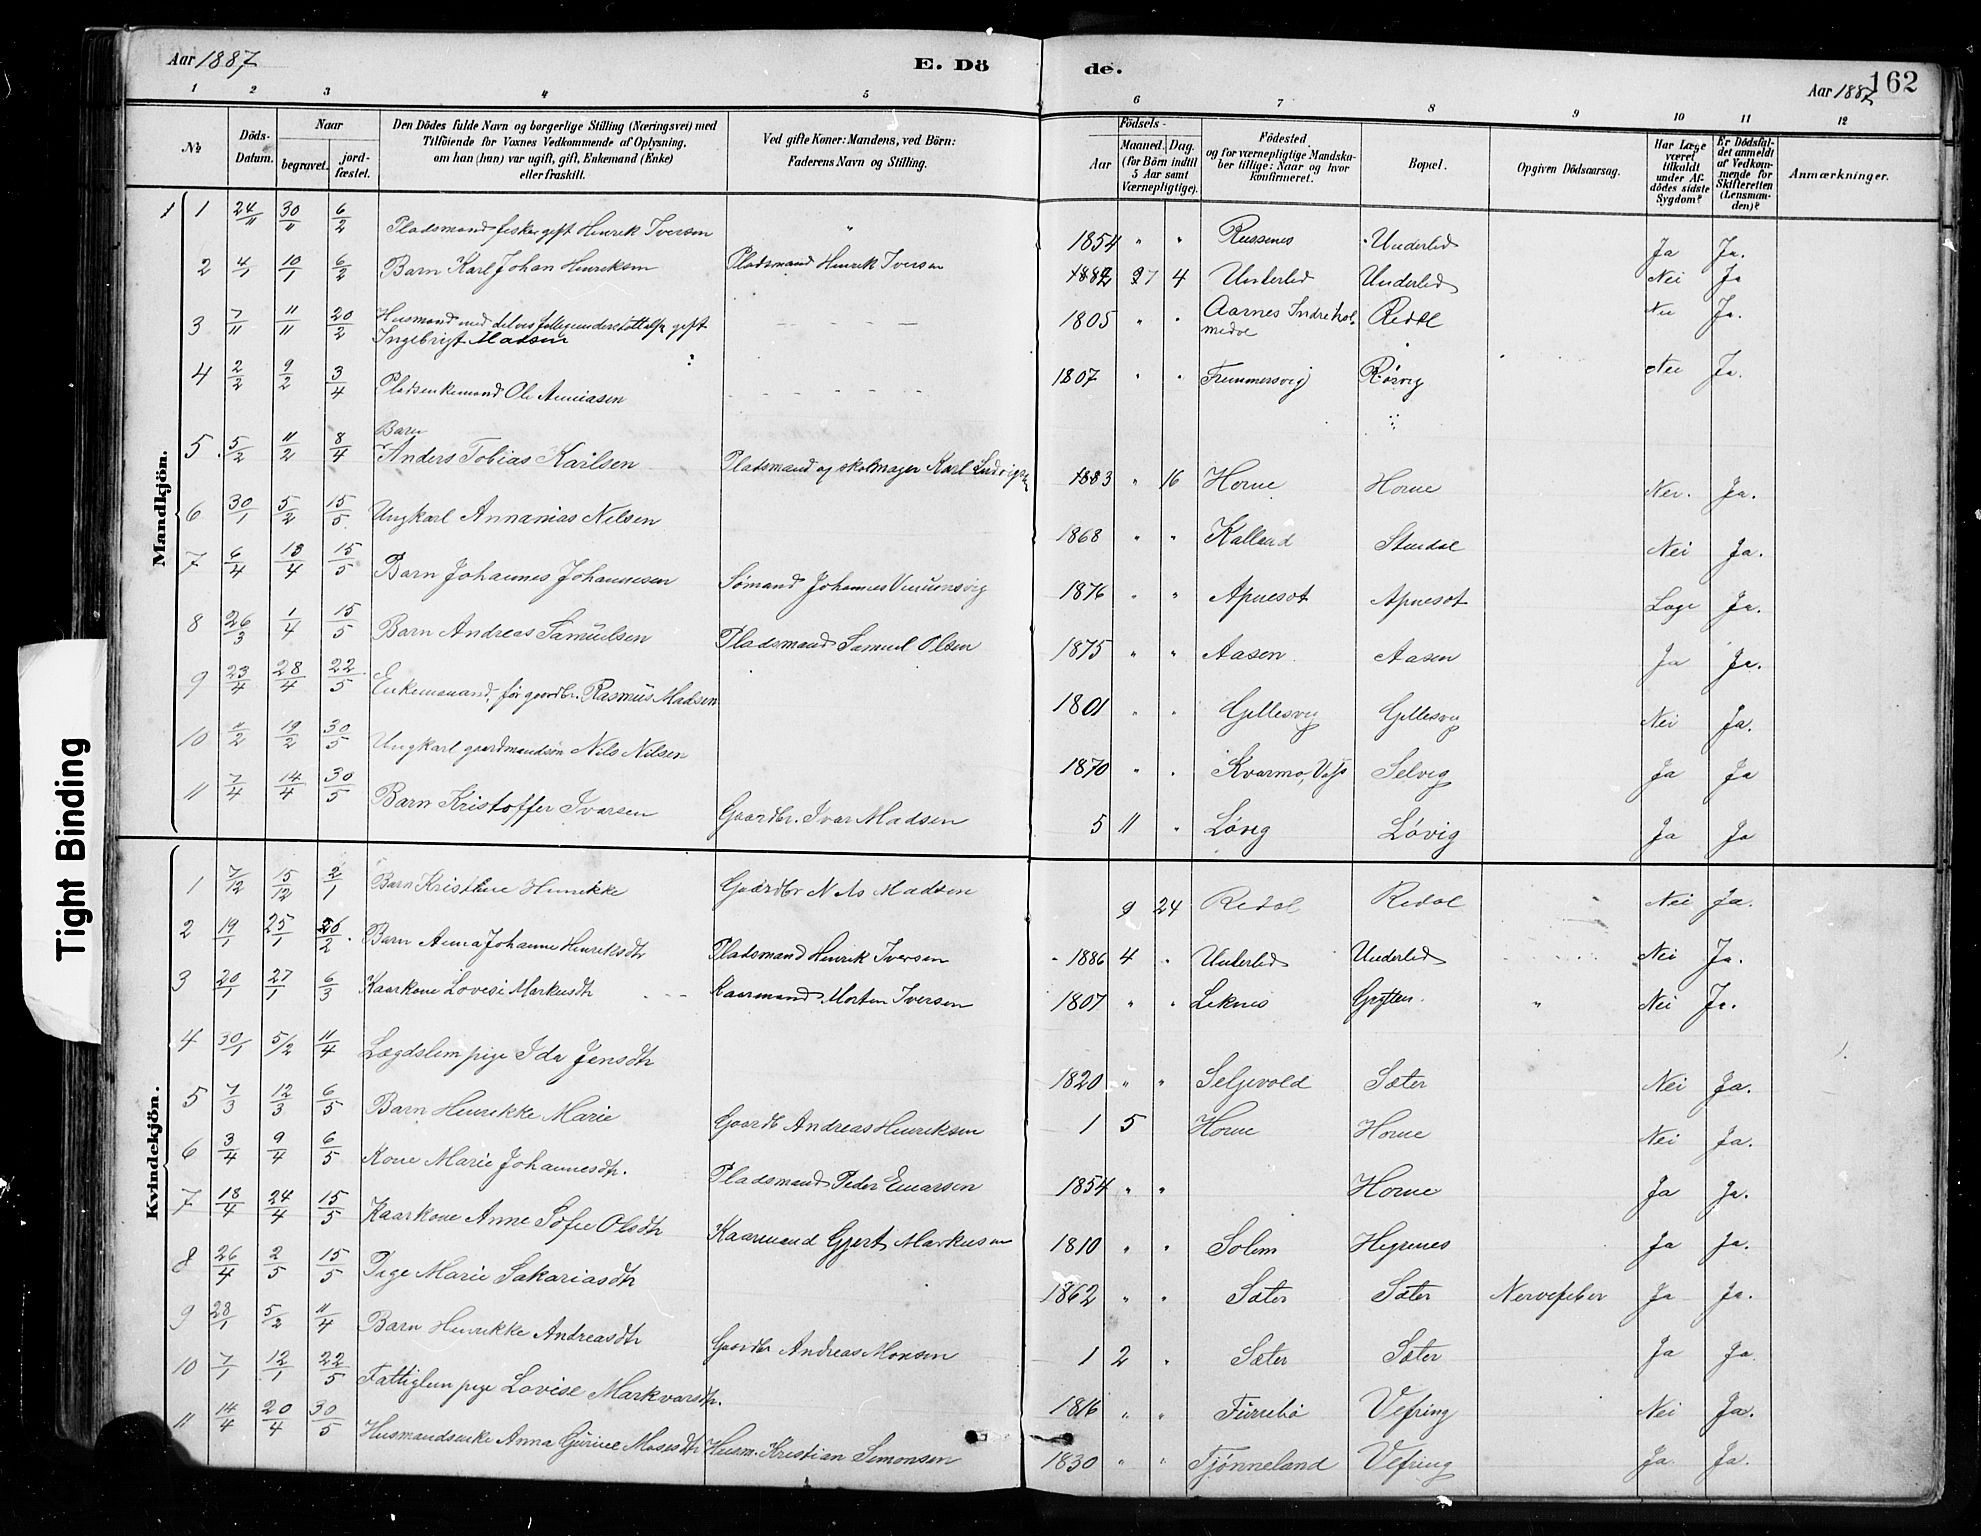 Aar 1887
E. Dö
de.
Aar 1887
162
1 2 3 4 5 6 7 8 9 10 11 12
№
Döds-Datum.
Naar
begravet.
jord-fæstet.
Den Dödes fulde Navn og borgerlige Stilling (Næringsvei) med
Tilföiende for Voxnes Vedkommende af Oplysning,
om han (hun) var ugift, gift, Enkemand (Enke)
eller fraskilt.
Ved gifte Koner: Mandens, ved Börn:
Faderens Navn og Stilling.
Födsels-
Aar
Maaned. Dag.
(for Börn indtil
5 Aar samt
Værnepligtige).
Födested
og for værnepligtige Mandska-
ber tillige: Naar og hvor
konfirmeret.
Bopæl.
Opgiven Dödsaarsag.
Har Læge
været
tilkaldt
under Af-
dödes sidste
Sygdom?
Er Dödsfal-
det anmeldt
af Vedkom-
mende for
Skifteretten
(Lensman-
den)?
Anmærkninger.
Mandkjön.
1 24/11 30/11 6/2 Pladsmand fisker gift Henrik Iversen " 1854 " " Russenes Underlid Ja Ja.
2 4/1 10/1 6/2 Barn Karl Johan Henriksen Pladsmand Henrik Iversen 1882 27 4 Underlid Underlid Nei Ja
3 7/11 11/11 20/2 Husmand med delvis fattigunderstöttelse gift
Ingebrigt Madsen 1805 " " Aarnes Indrehol-
medal Redal Nei Ja.
4 2/2 9/2 3/4 Pladsenkemand Ole Annias​en 1807 " " Frammersvig Rörvig Nei Ja.
5 5/2 11/2 8/4 Barn
Anders Tobias Karlsen Pladsmand og skolmager Karl Ludvigsen 1883 " 16 Horne Horne Nei. Ja.
6 30/1 5/2 15/5 Ungkarl Annanias Nilsen 1868 " " Kalland Stardal Nei Ja.
7 6/4 13/4 15/5 Barn Johannes Johannesen Sømand Johannes 1876 " " Apnesøt Apnesøt Læge Ja.
8 26/3 1/4 15/5 Barn Andreas Samuelsen Pladsmand Samuel Olsen 1875 " " Aasen. Aasen Ja Ja.
9 23/4 28/4 22/5 Enkemand, før gaardbr. Rasmus Madsen 1801 " " Gjellesvig Gjellesvig Nei Ja.
10 11/2 19/2 30/5 Ungkarl gaardmandsøn Nils Nilsen 1870 " " Kvarmo, Selvig Ja Ja
11 7/4 14/4 30/5 Barn Kristoffer Ivarsen Gaardbr. Ivar Madsen 5 11 " Løvig Løvig Ja Ja
Kvindekjön.
1 7/12 15/12 2/1 Barn Kristine Henrikke Gaardbr Nils Madsen 9 24 Redal Redal Nei Ja.
2 19/1 25/1 26/2 Barn Anna Johanne Henriksdtr Pladsmand Henrik Iversen 1886 4 " Underlid Underlid Nei Ja.
3 20/1 27/1 6/3 Kaarkone Lovise Markusdtr Kaarmand Morten Iversen 1807 " " Leknes Grytten. " Nei Ja.
4 30/1 5/2 11/4 Lægdslem pige Ida Jensdtr 1820 " " Seljevold Sæter Nei Ja.
5 7/3 12/3 6/5 Barn Henrikke Marie Gaardb Andreas Henriksen 1 5 Horne Horne Nei Ja.
6 3/4 9/4 6/5 Kone Marie Johannesdtr. Pladsmand Peder Einarsen 1854 " " Horne Ja Ja.
7 18/4 24/4 15/5 Kaarkone Anne Sofie Olsdtr Kaarmand Gjert Markusen 1810 " " Solem Hegrenes Ja Ja.
8 26/4 2/5 15/5 Pige Marie Sakariasdtr 1862 " " Sæter Sæter Nervefeber Ja Ja.
9 28/1 5/2 11/4 Barn Henrikke Andreasdtr Gaardbr Andreas Monsen 1 2 " Sæter Sæter Ja Ja
10 7/1 12/1 22/5 Fattiglem pige Lovise Markvarsdtr. 1816 " " Furrebö Vefring Nei Ja.
11 14/4 20/4 30/5 Husmandsenke Anna Gurine Mosesdtr Husm. Kristian Simonsen 1830 " " Tjønneland Vefring Ja. Ja.
Tight Binding